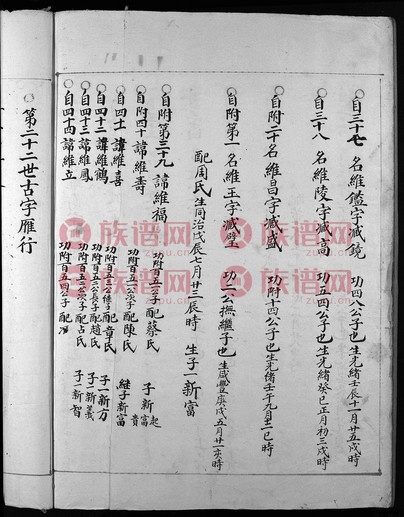 自三十七 名維鑑字咸鏡 功四八公子也生光緒壬辰十一月廿五戌時
自三十八 名維陵字咸高 功附四公子也生光緒癸巳正月初三戌時
自附二十名維昌字咸盛 功附十四公子也生光緒壬午九月廿一巳時
自附第一 名維王字咸璧 功二公撫繼子也生咸豐庚戌五月廿一亥時
配周氏生同治戊辰七月廿二辰時 生子一新富
自附第三十九 諱維福 功附百五二公子配蔡氏 子新起富貴
自附四十諱維壽
自四十一 諱維喜 功附百五二公次子配陳氏 繼子新富
自四十二 諱維鶴 配章氏 子一新方
自四十三諱維鳳 功附百五三公長子配趙氏 子一新義
自四十四諱維立 功附百五三公次子配占氏 子一新智
功附百五四公子配
第二十二世古字雁行
族谱网